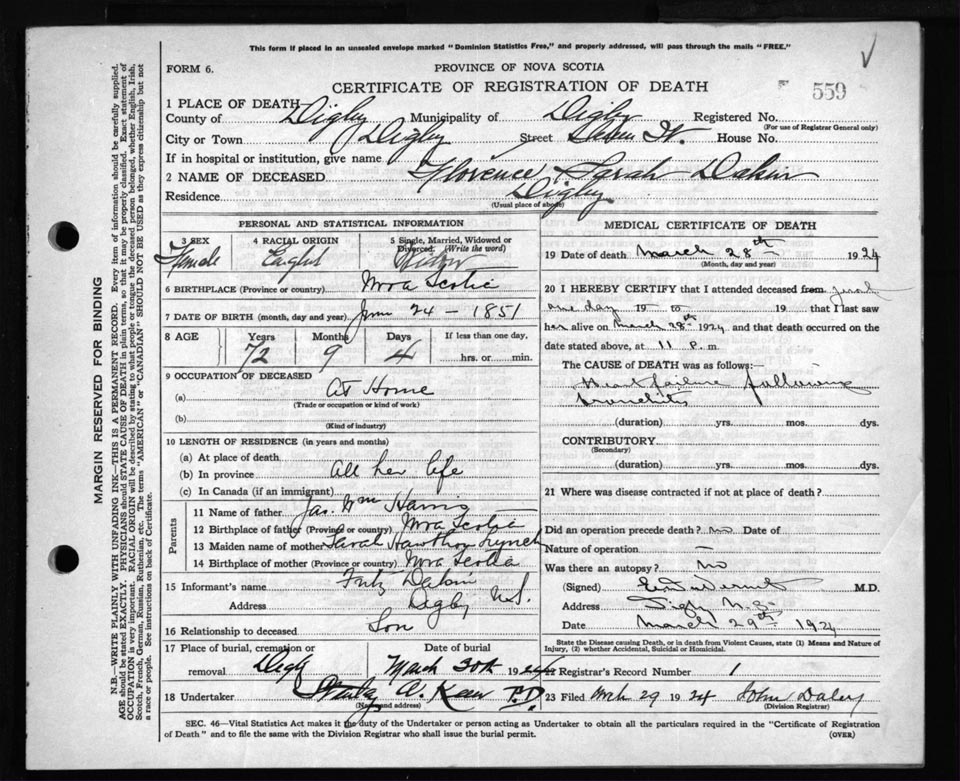 This form if placed in an unsealed envelope marked "Dominion Statistics Free," and properly addressed, will pass through the mails "FREE."
FORM 6.
PROVINCE OF NOVA SCOTIA
CERTIFICATE OF REGISTRATION OF DEATH
559
1 PLACE OF DEATH—
County of Digby Municipality of Digby Registered No.
(For use of Registrar General only)
City or Town Digby Street St. House No.
If in hospital or institution, give name
2 NAME OF DECEASED Florence Sarah Dakin
Residence Digby
(Usual place of abode)
PERSONAL AND STATISTICAL INFORMATION
3 SEX Female
4 RACIAL ORIGIN English
5 Single, Married, Widowed or Divorced. (Write the word) Widow
6 BIRTHPLACE (Province or country) Nova Scotia
7 DATE OF BIRTH (month, day and year) 24 – 1851
8 AGE Years 72 Months 9 Days 4 If less than one day, hrs. or min.
9 OCCUPATION OF DECEASED
(a) At Home
(Trade or occupation or kind of work)
(b)
(Kind of industry)
10 LENGTH OF RESIDENCE (in years and months)
(a) At place of death
(b) In province all her life
(c) In Canada (if an immigrant)
Parents
11 Name of father Jas. Wm Harris
12 Birthplace of father (Province or country) Nova Scotia
13 Maiden name of mother Sarah Hawthorn Lynch
14 Birthplace of mother (Province or country) Nova Scotia
15 Informant's name Fritz Dakin
Address Digby N.S.
16 Relationship to deceased Son
17 Place of burial, cremation or removal Digby
Date of burial March 30th 1924
18 Undertaker
(Name and address)
MEDICAL CERTIFICATE OF DEATH
19 Date of death March 28th 1924
(Month, day and year)
20 I HEREBY CERTIFY that I attended deceased from
one day 19 to 19 that I last saw
her alive on March 28th 1924 and that death occurred on the
date stated above, at 11 P.m.
The CAUSE OF DEATH was as follows:—
Heart failure following
bronchitis
(duration) yrs. mos. dys.
CONTRIBUTORY
(Secondary)
(duration) yrs. mos. dys.
21 Where was disease contracted if not at place of death?
Did an operation precede death? no Date of
Nature of operation —
Was there an autopsy? no
(Signed) M.D.
Address Digby N.S.
Date March 29th 1924
State the Disease causing Death, or in death from Violent Causes, state (1) Means and Nature of Injury, (2) whether Accidental, Suicidal or Homicidal.
22 Registrar's Record Number 1
23 Filed Mch 29 1924 John Daley
(Division Registrar)
SEC. 46—Vital Statistics Act makes it the duty of the Undertaker or person acting as Undertaker to obtain all the particulars required in the "Certificate of Registration
of Death" and to file the same with the Division Registrar who shall issue the burial permit.
(OVER)
MARGIN RESERVED FOR BINDING
N.B.—WRITE PLAINLY WITH UNFADING INK—THIS IS A PERMANENT RECORD. Every item of information should be carefully supplied.
AGE should be stated EXACTLY. PHYSICIANS should STATE CAUSE OF DEATH in plain terms, so that it may be properly classified. Exact statement of
OCCUPATION is very important. RACIAL ORIGIN will be described by stating to what people or tongue the deceased person belonged, whether English, Irish,
Scotch, French, German, Russian, Ruthenian, etc. The terms "AMERICAN" or "CANADIAN" SHOULD NOT BE USED as they express citizenship but not
a race or people. See instructions on back of Certificate.